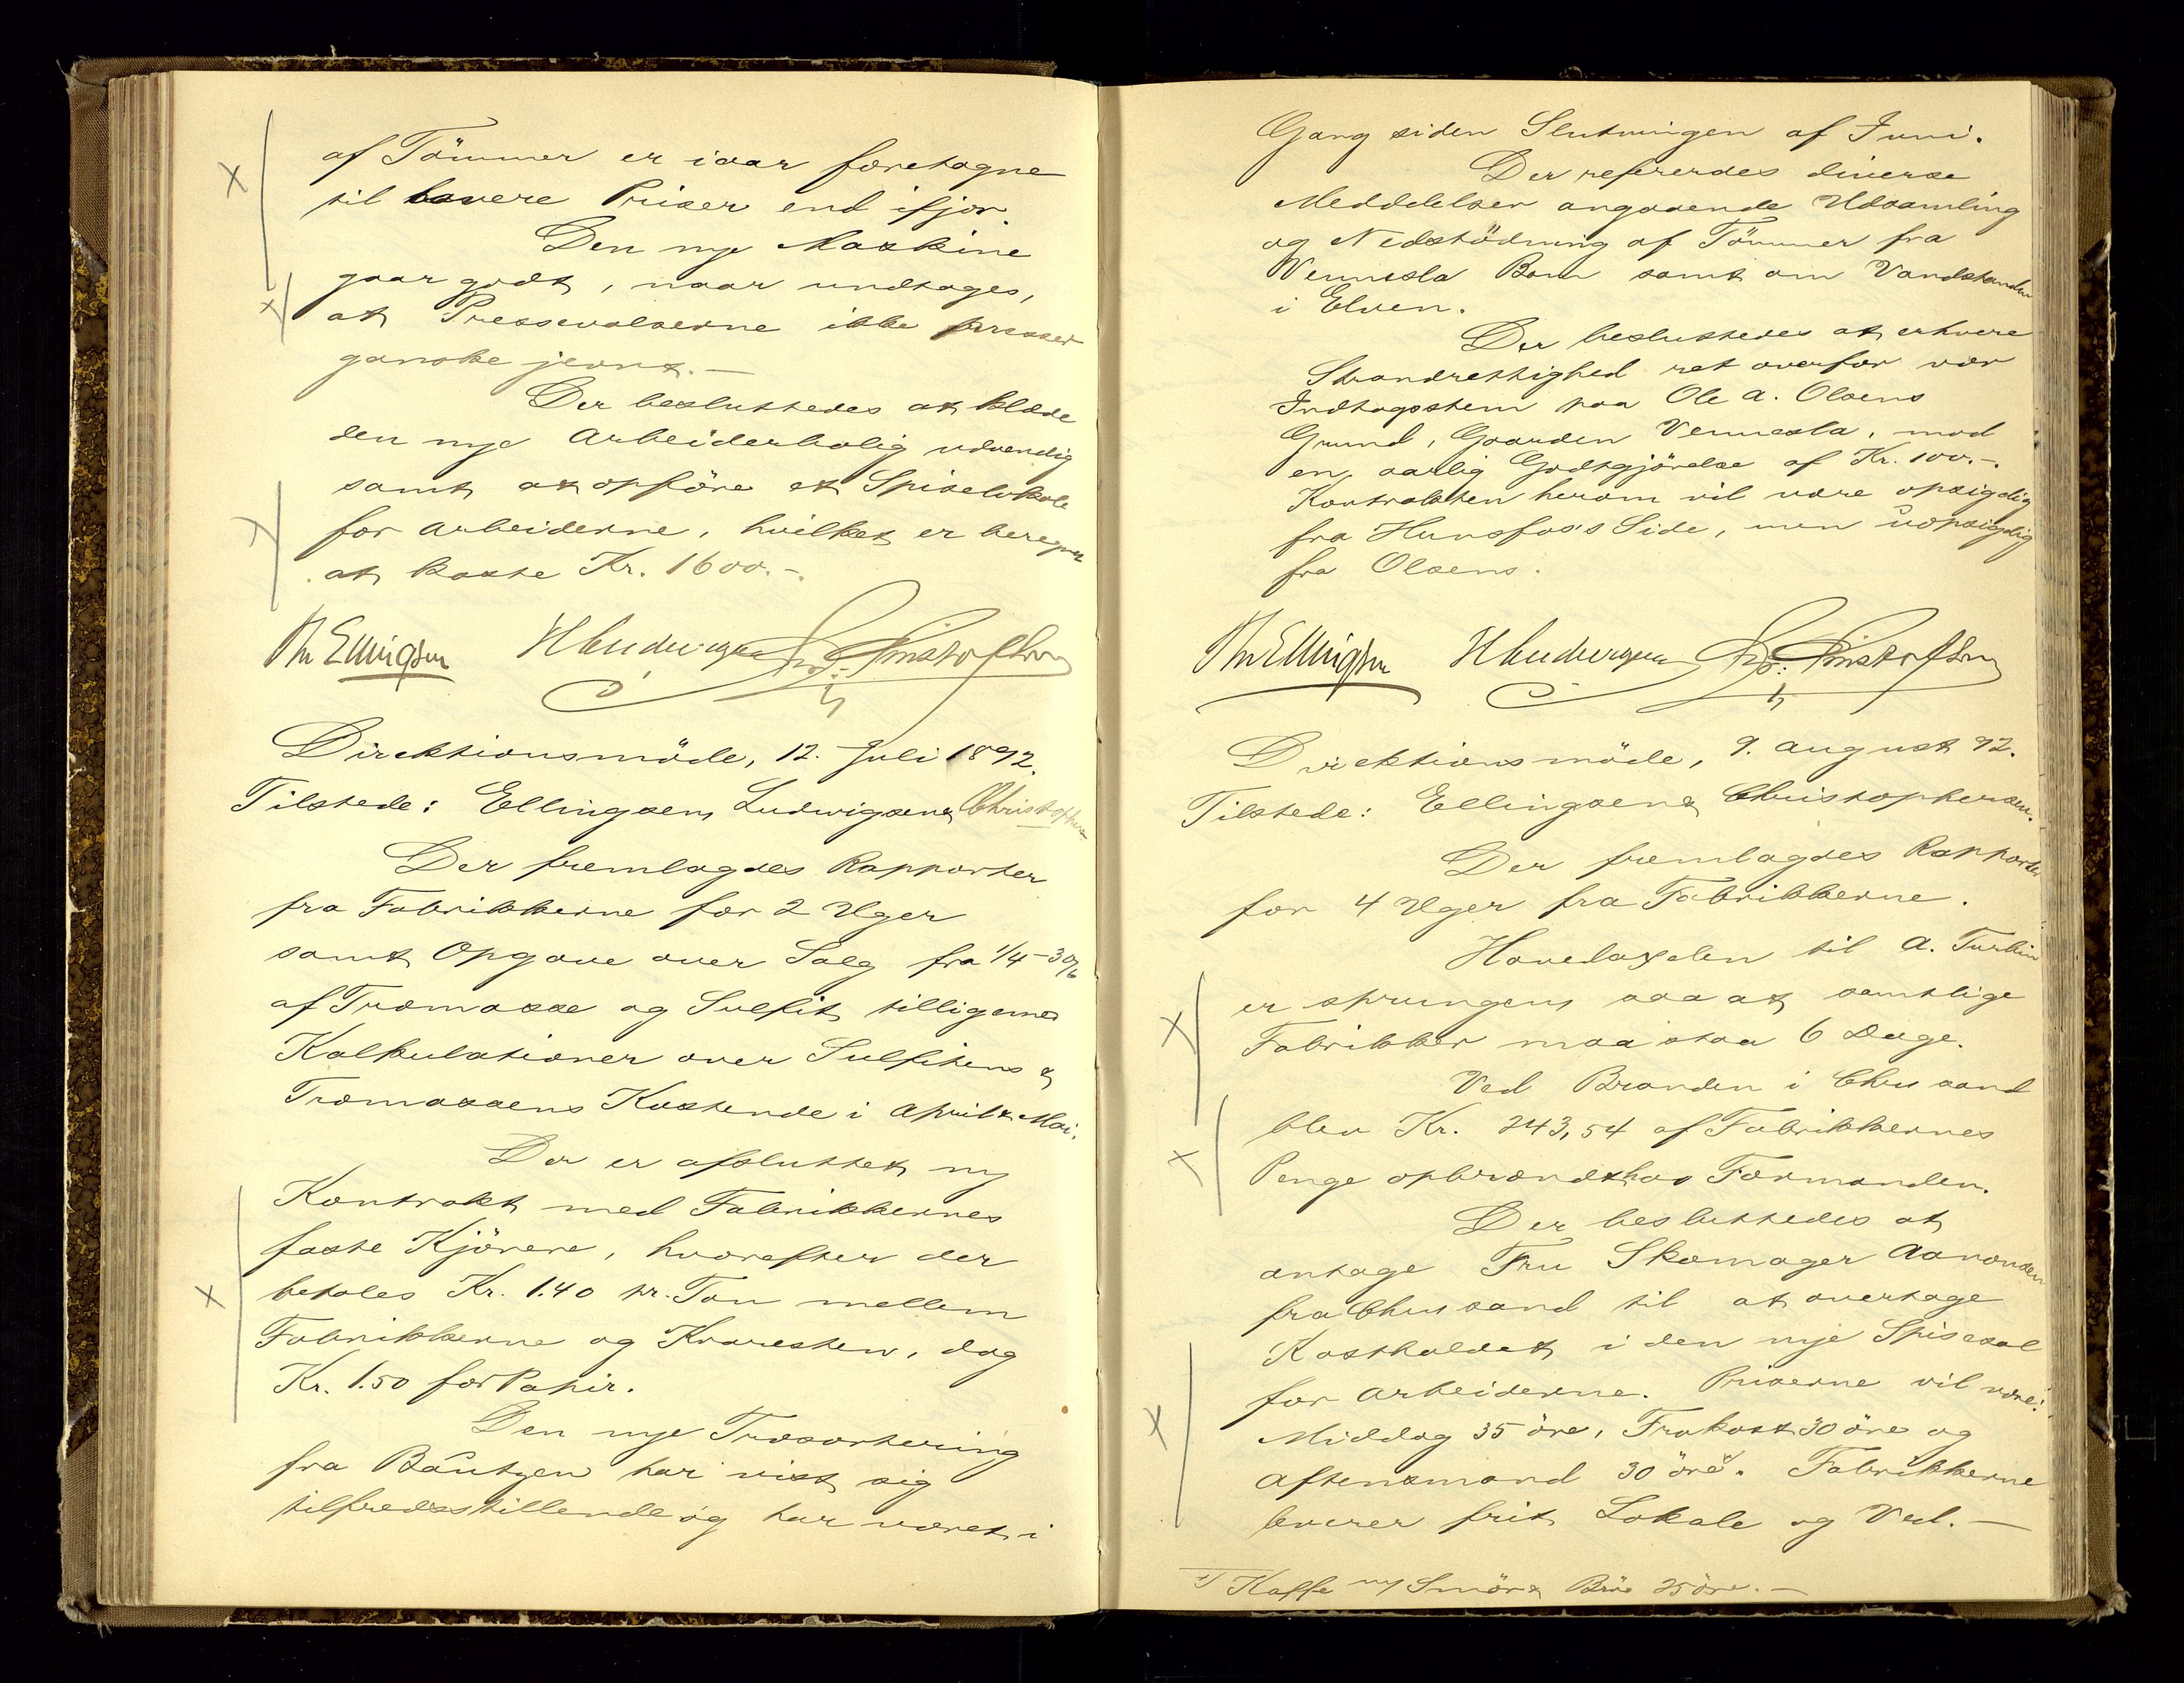 af Tömmer er iaar foretagne
til lavere Priser end ifjor.
Den nye Maskine
gaar godt, naar undtages,
at Pressevalserne ikke presser
ganske jevnt. —
Der besluttedes at klæde
den nye Arbeiderbolig udvendig
samt at opföre et Spiselokale
for Arbeiderne, hvilket er beregnet
at koste Kr. 1600.-.
Th Ellingsen H Ludwigsen Chr. Christophersen
Direktionsmöde, 12. Juli 1892.
Tilstede: Ellingsen, Ludwigsen & Christophersen
Der fremlagdes Rapporter
fra Fabrikkerne for 2 Uger
samt Opgave over Salg fra 1/4-30/6
af Træmasse og Sulfit tilligemed
Kalkulationer over Sulfitens &
Træmassens Kostende i April & Mai.
Der er afsluttet ny
Kontrakt med Fabrikkernes
faste Kjörere, hvorefter der
betales Kr. 1.40 pr. Ton mellem
Fabrikkerne og Kvaresten, dog
Kr. 1.50 for Papir.
Den nye Træsortering
fra Bäntzen har vist sig
tilfredsstillende og har været i
Gang siden Slutningen af Juni.
Der refereredes diverse
Meddelelser angaaende Udsamling
og Nedstödning af Tömmer fra
Vennesla Bom samt om Vandstanden
i Elven.
Der besluttedes at erhverve
Strandrettighed ret overfor vor
Indtagsstem paa Ole A. Olsens
Grund, Gaarden Vennesla, mod
en aarlig Godtgjörelse af Kr. 100.-.
Kontrakten herom vil være opsigelig
fra Hunsfos's Side, men uopsigelig
fra Olsens.
Th Ellingsen H Ludwigsen Chr. Christophersen
Direktionsmöde, 9. August 92.
Tilstede: Ellingsen & Christophersen.
Der fremlagdes Rapporter
for 4 Uger fra Fabrikkerne.
Hovedaxelen til A. Turbin
er sprungen saa at samtlige
Fabrikker maa staa 6 Dage.
Ved Branden i Chrsand
blev Kr. 243,54 af Fabrikkernes
Penge opbrændt hos Formanden.
Der besluttedes at
antage Fru Skomager Aanonsen
fra Chrsand til at overtage
Kostholdet i den nye Spisesal
for Arbeiderne. Priserne vil være:
Middag 35 öre, Frokost 30 öre og
Aftensmand 30 öre. Fabrikkerne
leverer frit Lokale og Ved. —
Kaffe m/ Smör & Bröd 25 öre. —